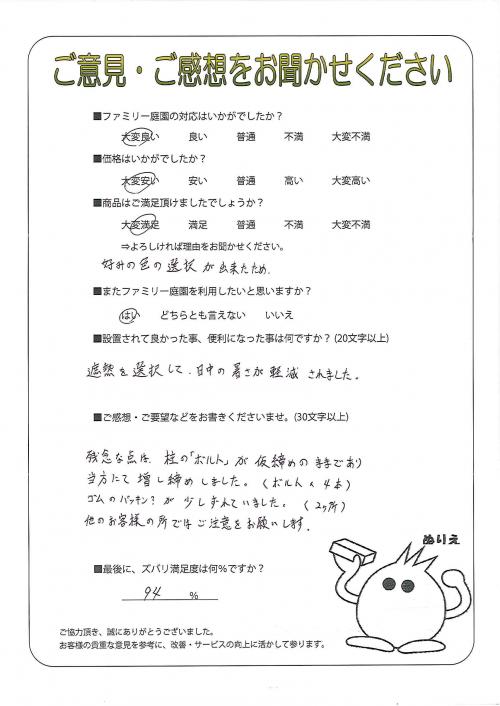 ご意見・ご感想をお聞かせください
■ファミリー庭園の対応はいかがでしたか？
大変良い 良い 普通 不満 大変不満
■価格はいかがでしたか？
大変安い 安い 普通 高い 大変高い
■商品はご満足頂けましたでしょうか？
大変満足 満足 普通 不満 大変不満
⇒よろしければ理由をお聞かせください。
好みの色の選択が出来たため.
■またファミリー庭園を利用したいと思いますか？
はい どちらとも言えない いいえ
■設置されて良かった事、便利になった事は何ですか？(20文字以上)
遮熱を選択して、日中の暑さが軽減されました。
■ご感想・ご要望などをお書きくださいませ。(30文字以上)
残念な点は、柱の「ボルト」が仮締めのままであり
当方にて増し締めしました。(ボルト×4本)
ゴムのパッキン？が少しずれていました。(2ヶ所)
他のお客様の所ではご注意をお願いします.
ぬりえ
■最後に、ズバリ満足度は何％ですか？
94 ％
ご協力頂き、誠にありがとうございました。
お客様の貴重な意見を参考に、改善・サービスの向上に活かして参ります。